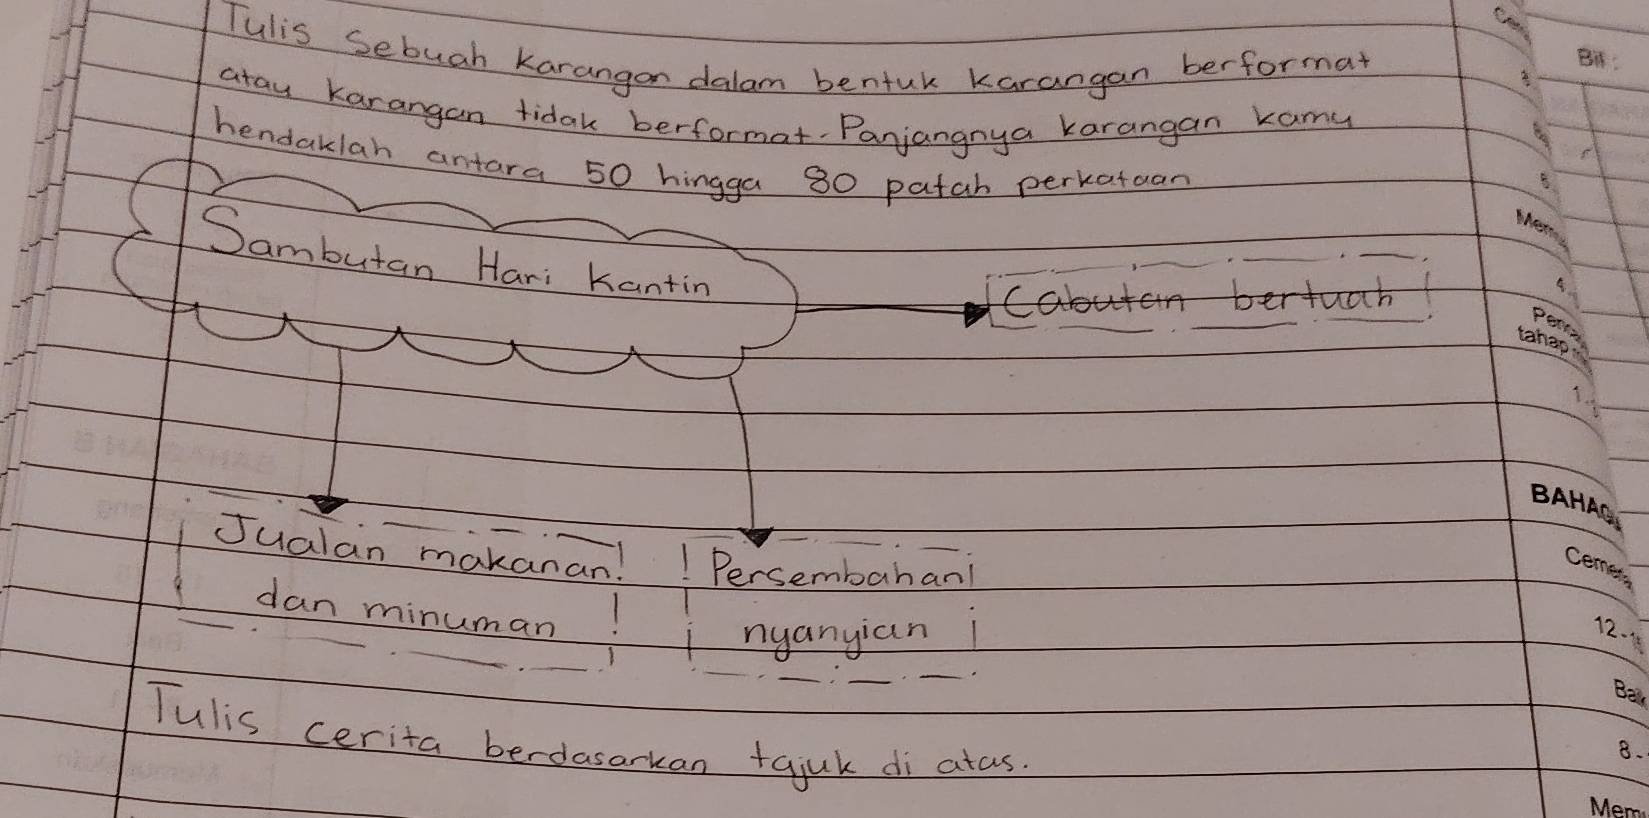 Tulis sebuah karangan dalam bentuk karangan berformat
atau karangan tidak berformat. Panjangnya karangan kamu
hendaklah antara 50 hingga 80 patah perkataan
Sambutan Hari Kantin
Cabutan bertuah
Jualan makanan
dan minuman
Persembahan
nyanyian
Tulis cerita berdasarkan tajuk di atas.
Bil:
tahap
1.
12-
8-